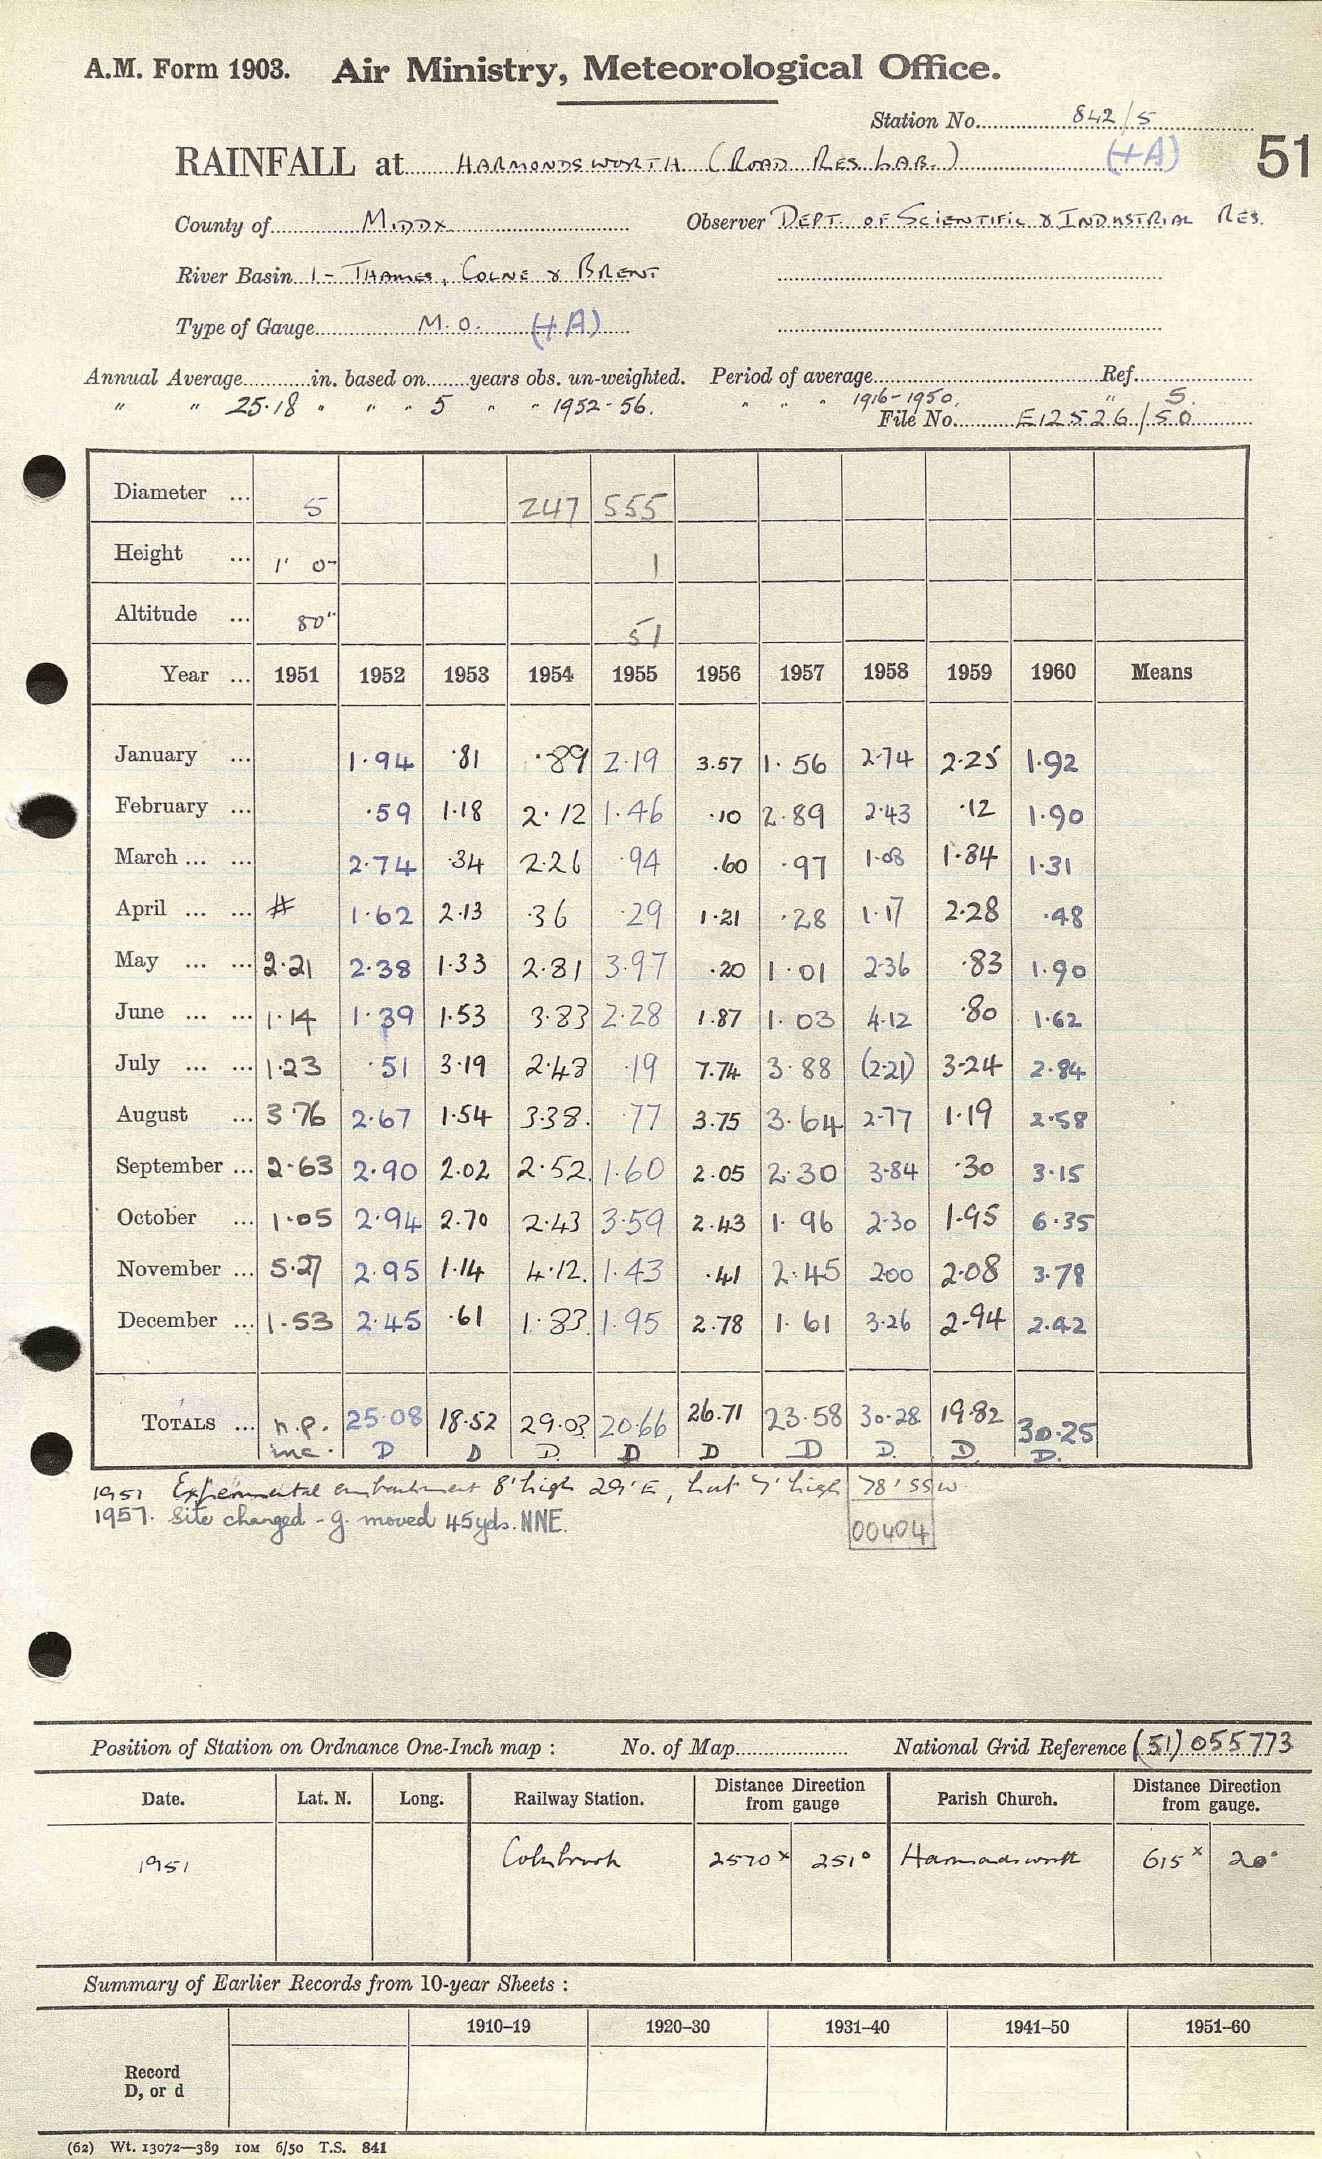 A.M. Form 1903. Air Ministry, Meteorological Office.
Station No. 842/5
RAINFALL at HARMONDSWORTH (ROAD RES LAB.) (+A) 51
County of MIDDX Observer DEPT. OF SCIENTIFIC & INDUSTRIAL RES.
River Basin 1 - THAMES, COLNE & BRENT
Type of Gauge M.O. (+A)
Annual Average in. based on years obs. un-weighted. Period of average Ref.
" " 25.18 " " " 5 " " 1952-56. " " " 1916-1950. " 5.
File No. E12526/50
Diameter ... 5 247 555
Height ... 1' 0" 1
Altitude ... 80" 51
Year ... 1951 1952 1953 1954 1955 1956 1957 1958 1959 1960 Means
January ... 1.94 .81 .89 2.19 3.57 1.56 2.74 2.25 1.92
February ... .59 1.18 2.12 1.46 .10 2.89 2.43 .12 1.90
March ... ... 2.74 .34 2.26 .94 .60 .97 1.08 1.84 1.31
April ... ... # 1.62 2.13 .36 .29 1.21 .28 1.17 2.28 .48
May ... ... 2.21 2.38 1.33 2.81 3.97 .20 1.01 2.36 .83 1.90
June ... ... 1.14 1.39 1.53 3.83 2.28 1.87 1.03 4.12 .80 1.62
July ... ... 1.23 .51 3.19 2.48 .19 7.74 3.88 (2.21) 3.24 2.84
August ... 3.76 2.67 1.54 3.38. .77 3.75 3.64 2.77 1.19 2.58
September ... 2.63 2.90 2.02 2.52. 1.60 2.05 2.30 3.84 .30 3.15
October ... 1.05 2.94 2.70 2.43 3.59 2.43 1.96 2.30 1.95 6.35
November ... 5.27 2.95 1.14 4.12. 1.43 .41 2.45 2.00 2.08 3.78
December ... 1.53 2.45 .61 1.83. 1.95 2.78 1.61 3.26 2.94 2.42
TOTALS ... n.p. 25.08 18.52 29.03 20.66 26.71 23.58 30.28 19.82 30.25
inc. D D D. D D D D. D. D.
1951 Experimental embankment 8' high 29' E, hut 7' high 78' SSW
1957. Site changed - g. moved 45yds. NNE.
00404
Position of Station on Ordnance One-Inch map : No. of Map National Grid Reference (51) 055773
Date. Lat. N. Long. Railway Station. Distance Direction from gauge Parish Church. Distance Direction from gauge.
1951 Colnbrook 2570x 251° Harmondsworth 615x 20°
Summary of Earlier Records from 10-year Sheets :
1910–19 1920–30 1931–40 1941–50 1951–60
Record
D, or d
(62) Wt. 13072—389 10M 6/50 T.S. 841